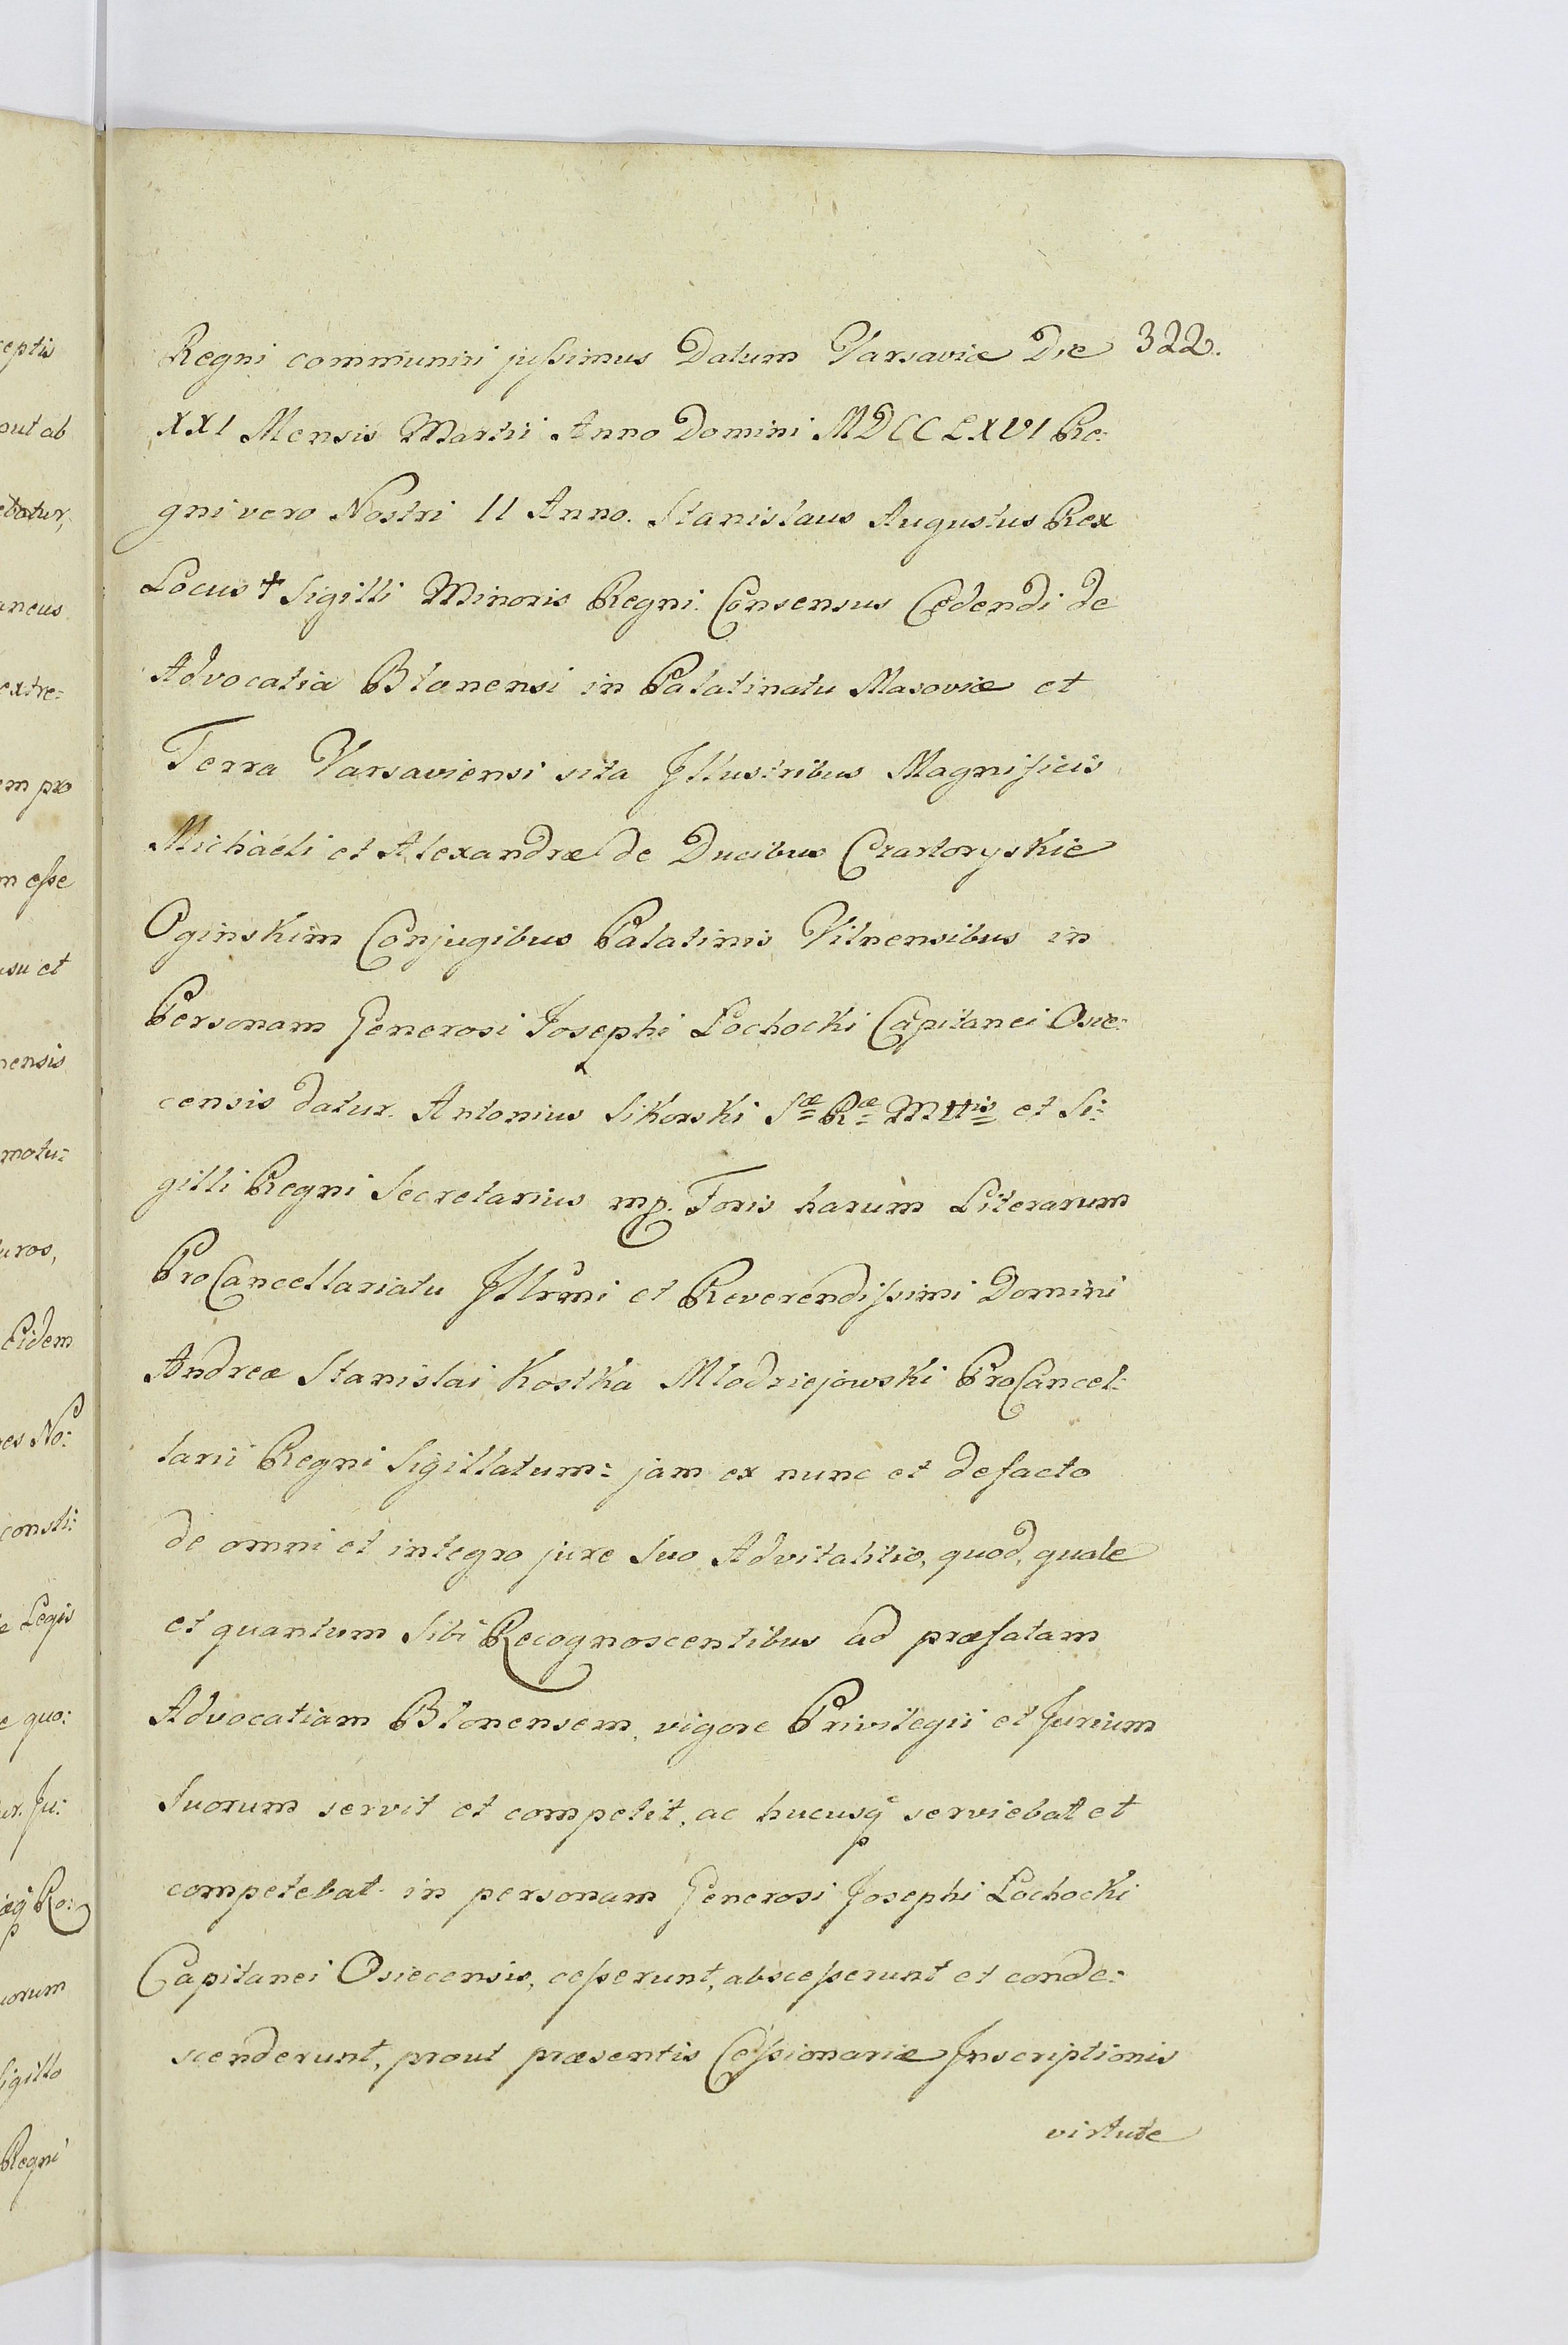 322.
Regni communiri jussimus Datum Varsaviæ Die
XXI Mensis Martii Anno Domini MDCCLXVI Re:
gni vero Nostri II Anno. Stanislaus Augustus Rex
Locus † Sigilli Minoris Regni. Consensus Cedendi de
Advocatia Blonensi in Palatinatu Masoviæ et
Terra Varsaviensi sita Jllustribus Magnificis
Michaeli et Alexandræ de Ducibus Czartoryskie
Oginskim Conjugibus Palatinis Vilnensibus in
Personam Generosi Josephi Lochocki Capitanei Osie:
censis datur. Antonius Sikorski Sæ Ræ Mttis et Si:
gilli Regni Secretarius mp. Foris harum Literarum
ProCancellariatu Jllrmi et Reverendissimi Domini
Andreæ Stanislai Kostka Mlodziejowski ProCancel:
larii Regni Sigillatum: jam ex nunc et defacto
de omni et integro jure Suo Advitalitio, quod, quale
et quantum Sibi Recognoscentibus ad præfatam
Advocatiam Blonensem, vigore Privilegii et Jurium
Suorum servit et competit, ac hucusq serviebat et
competebat in personam Generosi Josephi Lochocki
Capitanei Osiecensis, cesserunt, abscesserunt et conde:
scenderunt, prout præsentis Cessionariæ Jnscriptionis
virtute
ceptis
out ab
ebatur,
aneus
extre:
em pro
m esse
usu et
nensis
motu:
uros,
Eidem
es No:
consti:
e Legis
e quo:
ur. Ju:
æq Ro:
uorum
Sigillo
Regni